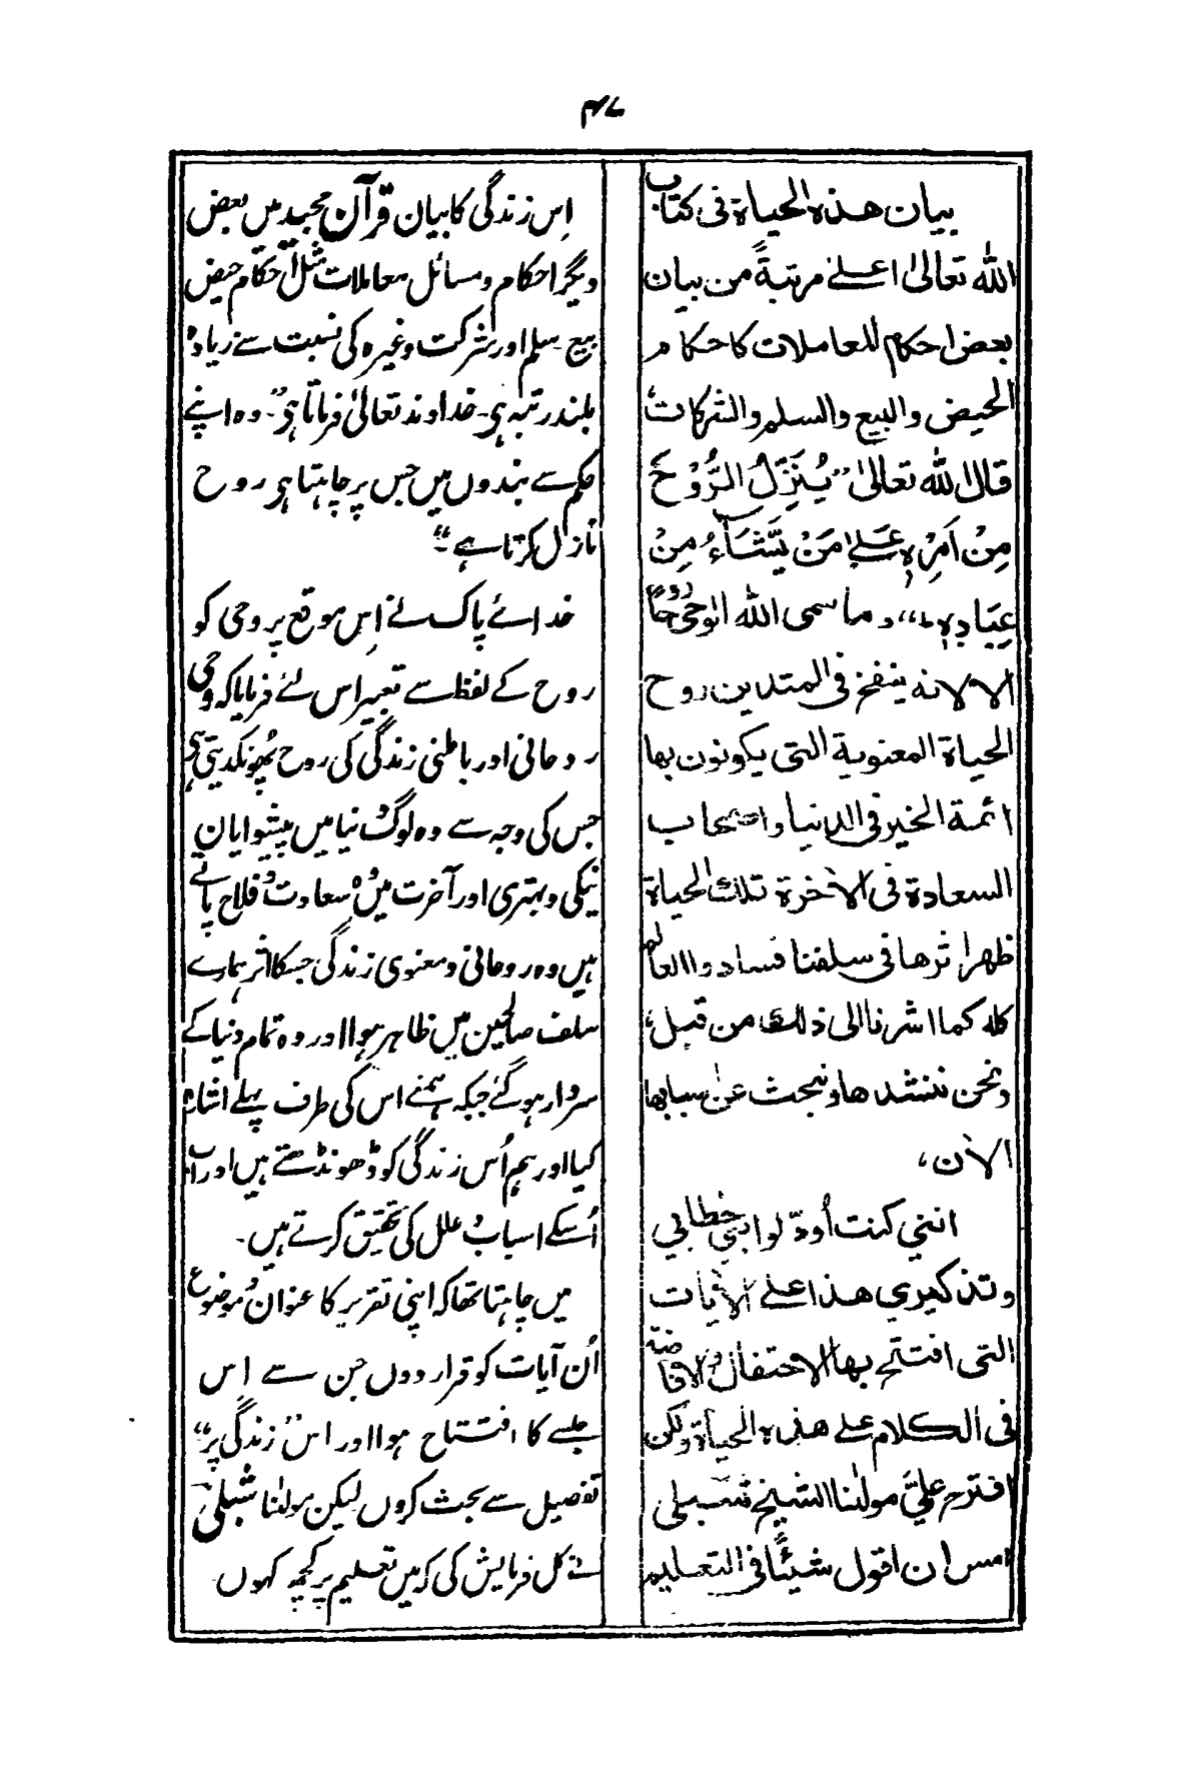 ۴۷
بیان هذه الحیاة فی کتاب
الله تعالیٰ اعلےٰ مرتبةً من بیان
بعض احکام المعاملات کاحکام
الحیض والبیع والسلم والشرکات،
قال الله تعالیٰ "یُنَزِّلُ الرُّوْحَ
مِنْ اَمْرِهٖ عَلےٰ مَنْ یَّشَآءُ مِنْ
عِبَادِهٖ"، وما سمی الله الوحی روحًا
الا لانه ینفخ فی المتدین روح
الحیاة المعنویة التی یکونون بها
ائمة الخیر فی الدنیا واصحاب
السعادة فی الاٰخرة تلك الحیاة
ظهر اثرها فی سلفنا فسادوا العالم
کله کما اشرنا الی ذلك من قبل،
ونحن ننشدها ونبحث عن اسبابها
الاٰن،
اننی کنت أودّ لو ابنی خطابی
وتذکیری هذا علے الاٰیات
التی افتتح بها الاحتفال والافاضة
فی الکلام علے هذه الحیاة ولکن
اقترح علیَّ مولٰنا الشیخ شبلی
امس ان اقول شیئًا فی التعلیم
اِس زندگی کا بیان قرآن مجید میں بعض
دیگر احکام و مسائل معاملات مثل احکام حیض
بیع ۔ سلم اور شرکت وغیرہ کی نسبت سے زیادہ
بلند رتبہ ہی۔ خداوند تعالیٰ فرماتا ہی "۔ وہ اپنے
حکم سے بندوں میں جس پر چاہتا ہی روح
نازل کرتا ہے"۔
خدائے پاک نے اِس موقع پر وحی کو
روح کے لفظ سے تعبیر اس لئے فرمایا کہ وحی
روحانی اور باطنی زندگی کی روح پُھونکدیتی ہی
جس کی وجہ سے وہ لوگ دنیا میں پیشوایان
نیکی و بہتری اور آخرت میں وہ سعادت و فلاح پاتے
ہیں وہ روحانی و معنوی زندگی جسکا اثر ہمارے
سلف صالحین میں ظاہر ہوا اور وہ تمام دنیا کے
سردار ہو گئے جبکہ ہمنے اس کی طرف پہلے اشارہ
کیا اور ہم اُس زندگی کو ڈھونڈھتے ہیں اور اب
اُسکے اسباب و علل کی تحقیق کرتے ہیں ۔
میں چاہتا تھا کہ اپنی تقریر کا عنوان و موضوع
اُن آیات کو قرار دوں جن سے اِس
جلسے کا افتتاح ہوا اور اس "زندگی پر"
تفصیل سے بحث کروں لیکن مولٰنا شبلی
نے کل فرمایش کی کہ میں تعلیم پر کچھ کہوں